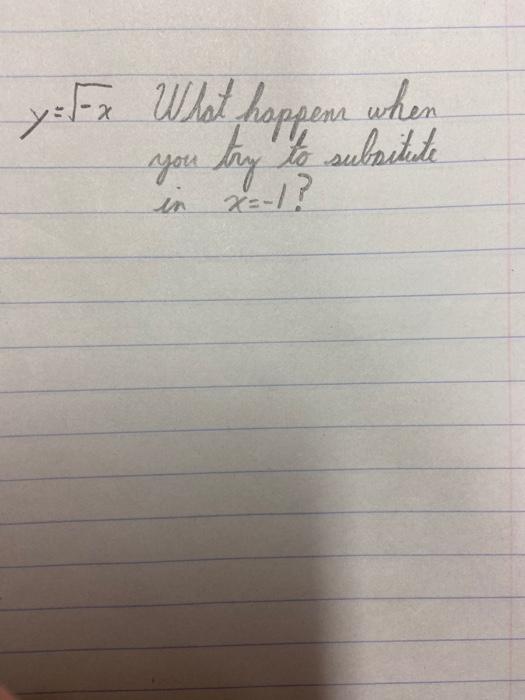 y=√-x What happens when
you try to subsitute
in x=-1?